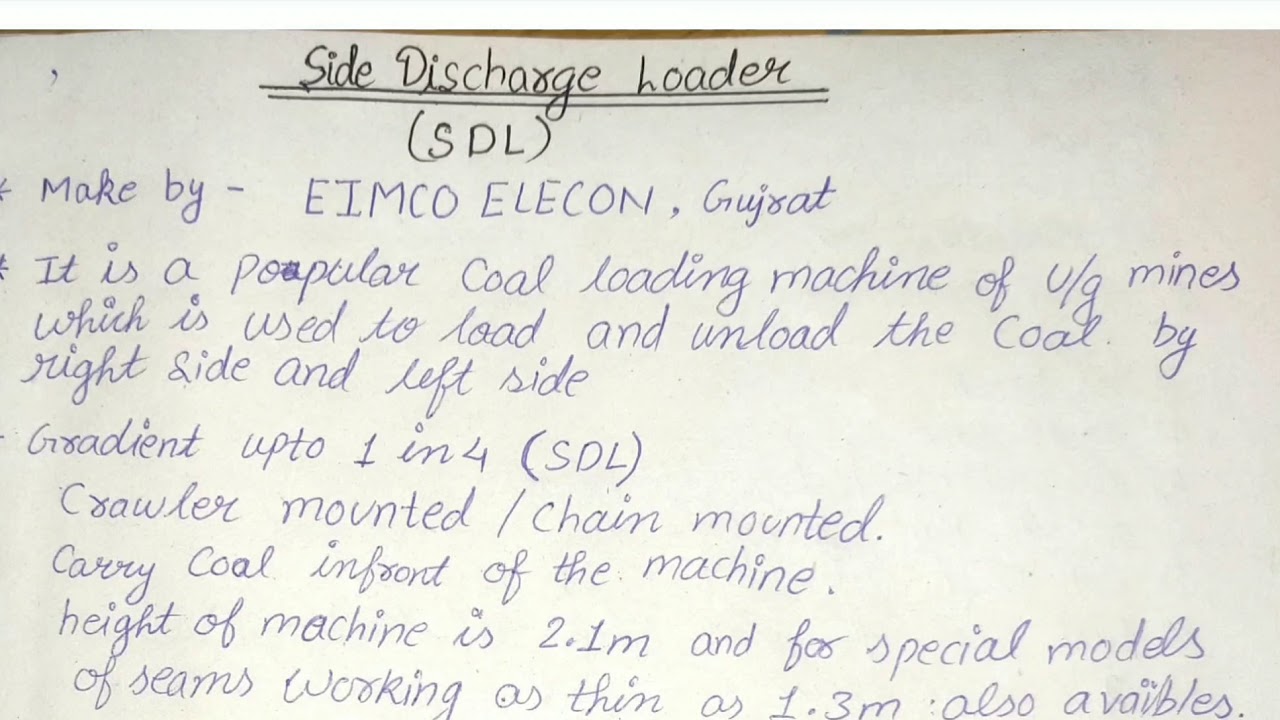 Side Discharge Loader
(SDL)
* Make by - EIMCO ELECON, Gujrat
* It is a popular Coal loading machine of U/g mines
which is used to load and unload the Coal. by
right side and left side
- Gradient upto 1 in 4 (SDL)
Crawler mounted / Chain mounted.
Carry Coal infront of the machine.
height of machine is 2.1m and for special models
of seams working as thin as 1.3m also avaibles.